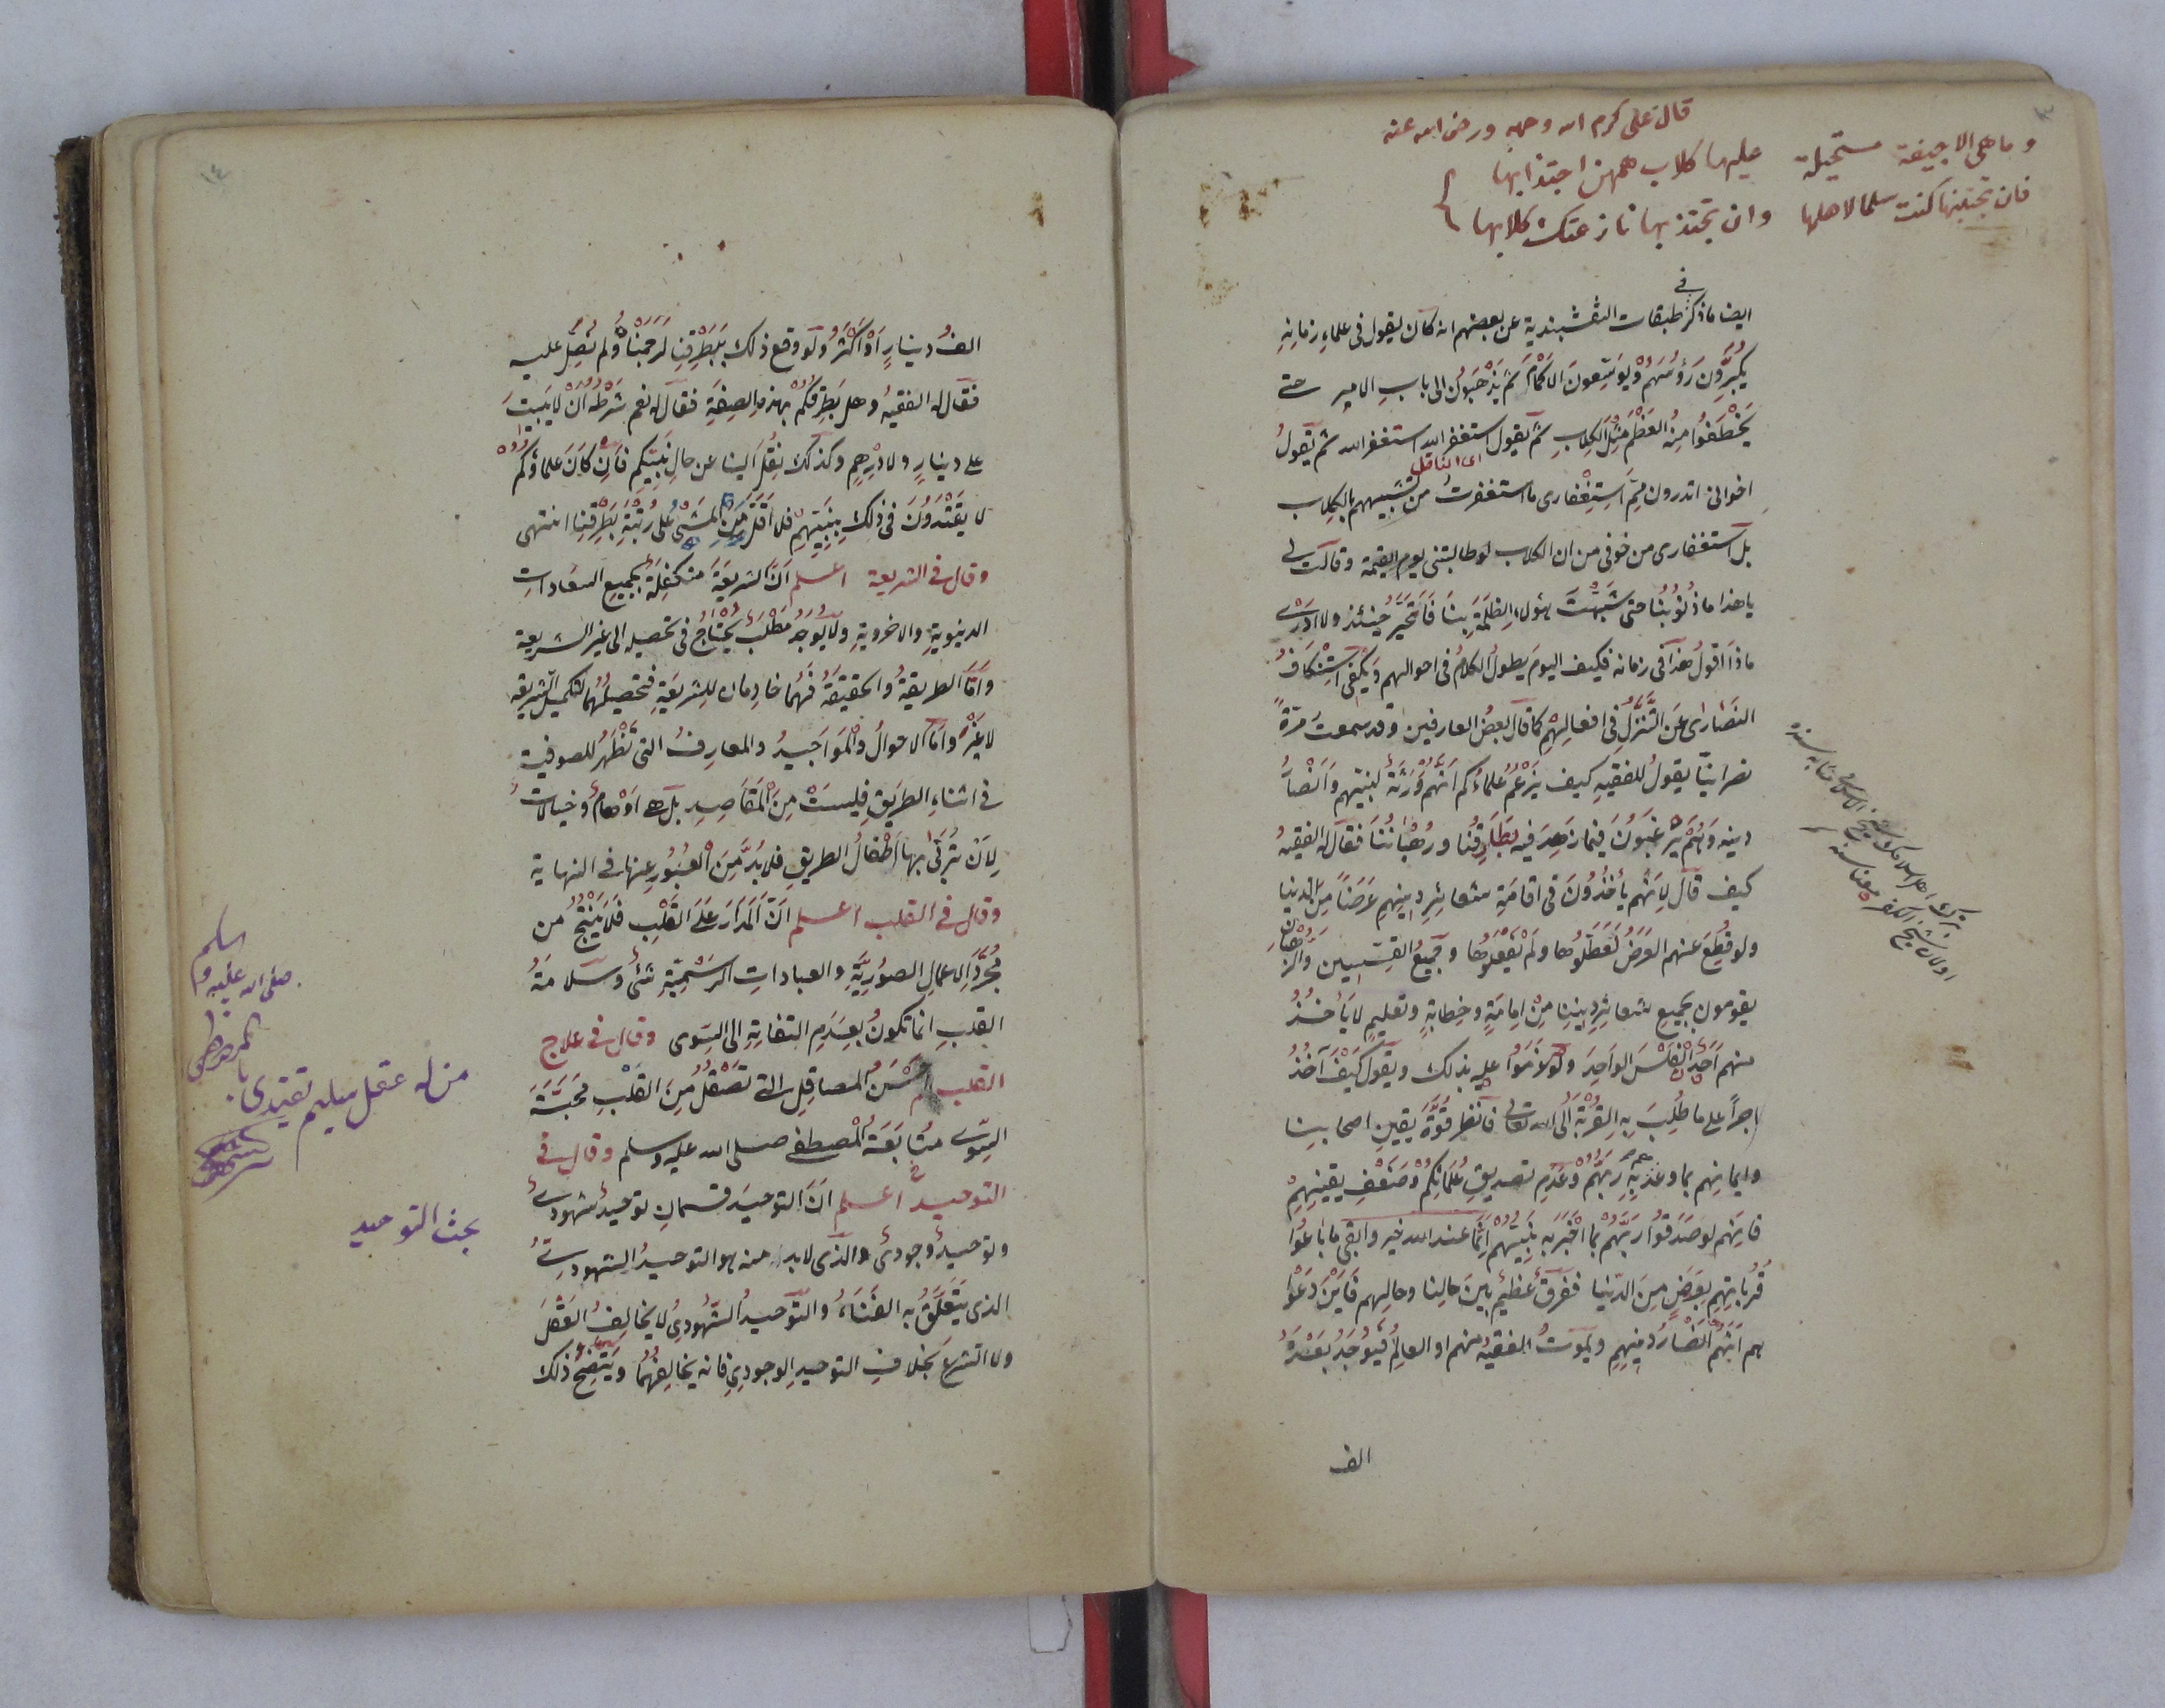 قال على كرم الله وجهه ورضى الله عنه
وما هى الا جيفة مستحيلة عليها كلاب همهن اجتذابها
فان تجتنبها كنت سلما لاهلها وان تجتذبها نازعتك كلابها
ايضا ما ذكر في طبقات النقشبندية عن بعضهم انه كان يقول فى علماء زمانه
يكبرون رؤسهم ويوسعون الاكمام ثم يذهبون الى باب الامير حتى
يخطفوا منه العظم مثل الكلاب ثم يقول استغفر الله استغفر الله ثم يقول
اى الناقل
اخوانى اتدرون مم استغفارى ما استغفرت من تشبيههم بالكلاب
بل استغفارى من خوفى من ان الكلاب لو طالبتنى يوم القيمة وقالت لى
يا هذا ما ذنوبنا حتى شبهت هؤلاء الظلمة بنا فاتحير حينئذ ولا ادرى
ماذا اقول هذا فى زمانه فكيف اليوم يطول الكلام فى احوالهم ويكفى استنكاف
النصارى عن التنزل فى افعالهم كما قال بعض العارفين وقد سمعت مرة
نصرانيا يقول للفقيه كيف يزعم علماءكم انهم ورثة نبيهم وانصار
دينه وهم يرغبون فيما زهد فيه بطارقنا ورهباننا فقال له الفقيه
كيف قال لانهم يأخذون فى اقامة شعائر دينهم عرضا من الدنيا
ولو قطع عنهم العرض لعطلوها ولم يفعلوها وجميع القسيسين والرهبان
يقومون بجميع شعائر ديننا من امامة وخطابة وتعليم لا يأخذ
منهم احد الفلس الواحد ولو لاموا عليه بذلك ويقول كيف آخذ
اجرا على ما طلب به القربة الى الله تعالى فانظر قوة يقين اصحابنا
وايمانهم بما وعد به ربهم وعدم تصديق علمائكم وضعف يقينهم
فانهم لو صدقوا ربهم بما اخبر به نبيهم انما عند الله خير وابقى ما باعوا
قرباتهم بعرض من الدنيا ففرق عظيم بين حالنا وحالهم فاين دعوا
هم انهم انصار دينهم ويموت الفقيه منهم او العالم فيوجد بعده
الف
الف دينار او اكثر ولو وقع ذلك ببطرقنا لرجمناه ولم نصل عليه
فقال له الفقيه وهل بطرقكم بهذه الصفة فقال له نعم شرطه ان لا يبيت
على دينار ولا درهم وكذلك نقل الينا عن حال نبيكم فان كان علماؤكم
لا يقتدون فى ذلك بنبيهم فلا اقل من المشى على رتبة بطرقنا انتهى
وقال فى الشريعة اعلم ان الشريعة متكفلة بجميع السعادات
الدنيوية والاخروية ولا يوجد مطلب يحتاج فى تحصيله الى غير الشريعة
واما الطريقة والحقيقة فهما خادمان للشريعة فتحصيلهما لتكميل الشريعة
لا غير واما الاحوال والمواجيد والمعارف التى تظهر للصوفية
فى اثناء الطريق فليست من المقاصد بل هى اوهام وخيالات
لان تربى بها اطفال الطريق فلا بد من العبور عنها فى النهاية
وقال فى القلب اعلم ان المدار على القلب فلا ينتج من
مجرد الاعمال الصورية والعبادات الرسمية شئ وسلامة
القلب انما تكون بعدم التفاته الى السوى وقال فى علاج
القلب احسن المصاقل التى تصقل من القلب محبة
السوى متابعة المصطفى صلى الله عليه وسلم وقال فى
التوحيد اعلم ان التوحيد قسمان توحيد شهودى
وتوحيد وجودى والذى لا بد منه هو التوحيد الشهودى
الذى يتعلق به الفناء والتوحيد الشهودى لا يخالف العقل
ولا الشرع بخلاف التوحيد الوجودى فانه يخالفهما ويتضح ذلك
من له عقل سليم تقتدى
بالمصطفى
صلى الله عليه و
سلم
بحث التوحيد